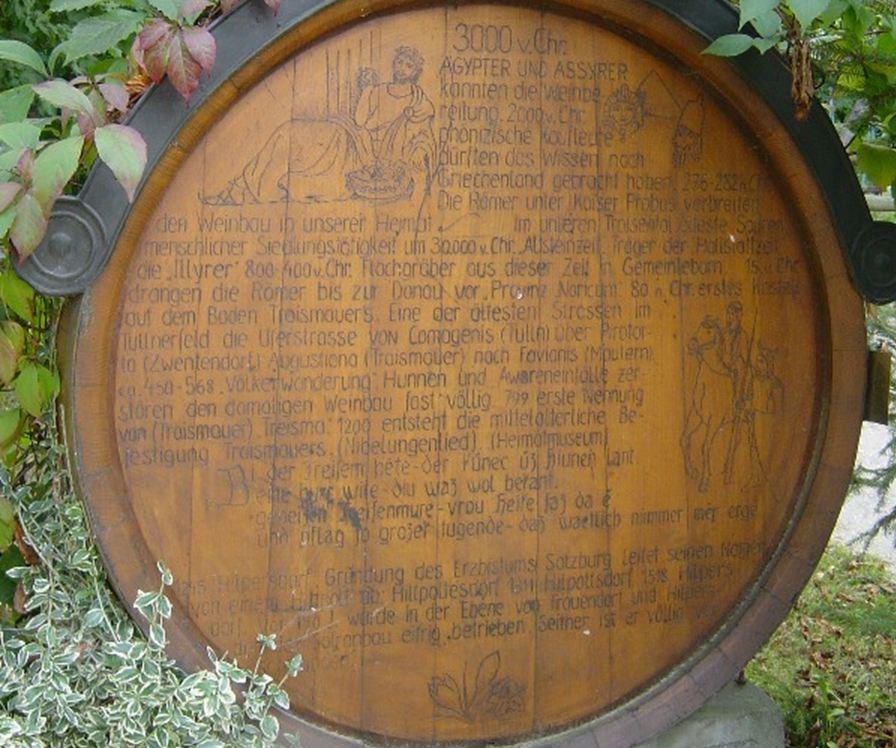 3000 v. Chr.
ÄGYPTER UND ASSYRER
kannten die Weinbe
reitung. 2000 v. Chr.
phönizische Kaufleute
dürften das Wissen nach
Griechenland gebracht haben. 276-282 n. Chr.
Die Römer unter Kaiser Probus verbreiten
den Weinbau in unserer Heimat. Im unteren Traisental älteste Spuren
menschlicher Siedlungstätigkeit um 30.000 v. Chr. Altsteinzeit. Träger der Hallstattzeit
die "Illyrer" 800-400 v. Chr. Flachgräber aus dieser Zeit in Gemeinlebarn. 15 v. Chr.
drangen die Römer bis zur Donau vor. Provinz Noricum. 80 n. Chr. erstes Kastell
auf dem Boden Traismauers. Eine der ältesten Strassen im
Tullnerfeld die Uferstrasse von Comagenis (Tulln) über Piroto-
to (Zwentendorf) Augustiana (Traismauer) nach Favianis (Mautern)
ca. 450-568 "Völkerwanderung" Hunnen und Awareneinfälle zer-
stören den damaligen Weinbau fast völlig. 799 erste Nennung
von (Traismauer) Treisma. 1200 entsteht die mittelalterliche Be-
festigung Traismauers. (Nibelungenlied). (Heimatmuseum)
Bi der Treisem hete der künec ûz Hiunen lant
eine burc wîte - diu waz wol bekant
geheizen Treisenmure - vrou Helke saz da ê
und pflag so grozer tugende - daz waetlich nimmer mer ergê
"Hilpersdorf". Gründung des Erzbistums Salzburg leitet seinen Namen
von einem ab: Hiltpoltesdorf 1311 Hilpoltsdorf 1578 Hilpers
dorf. wurde in der Ebene von Frauendorf und Hilpers-
Safranbau eifrig betrieben. Seither ist er völlig